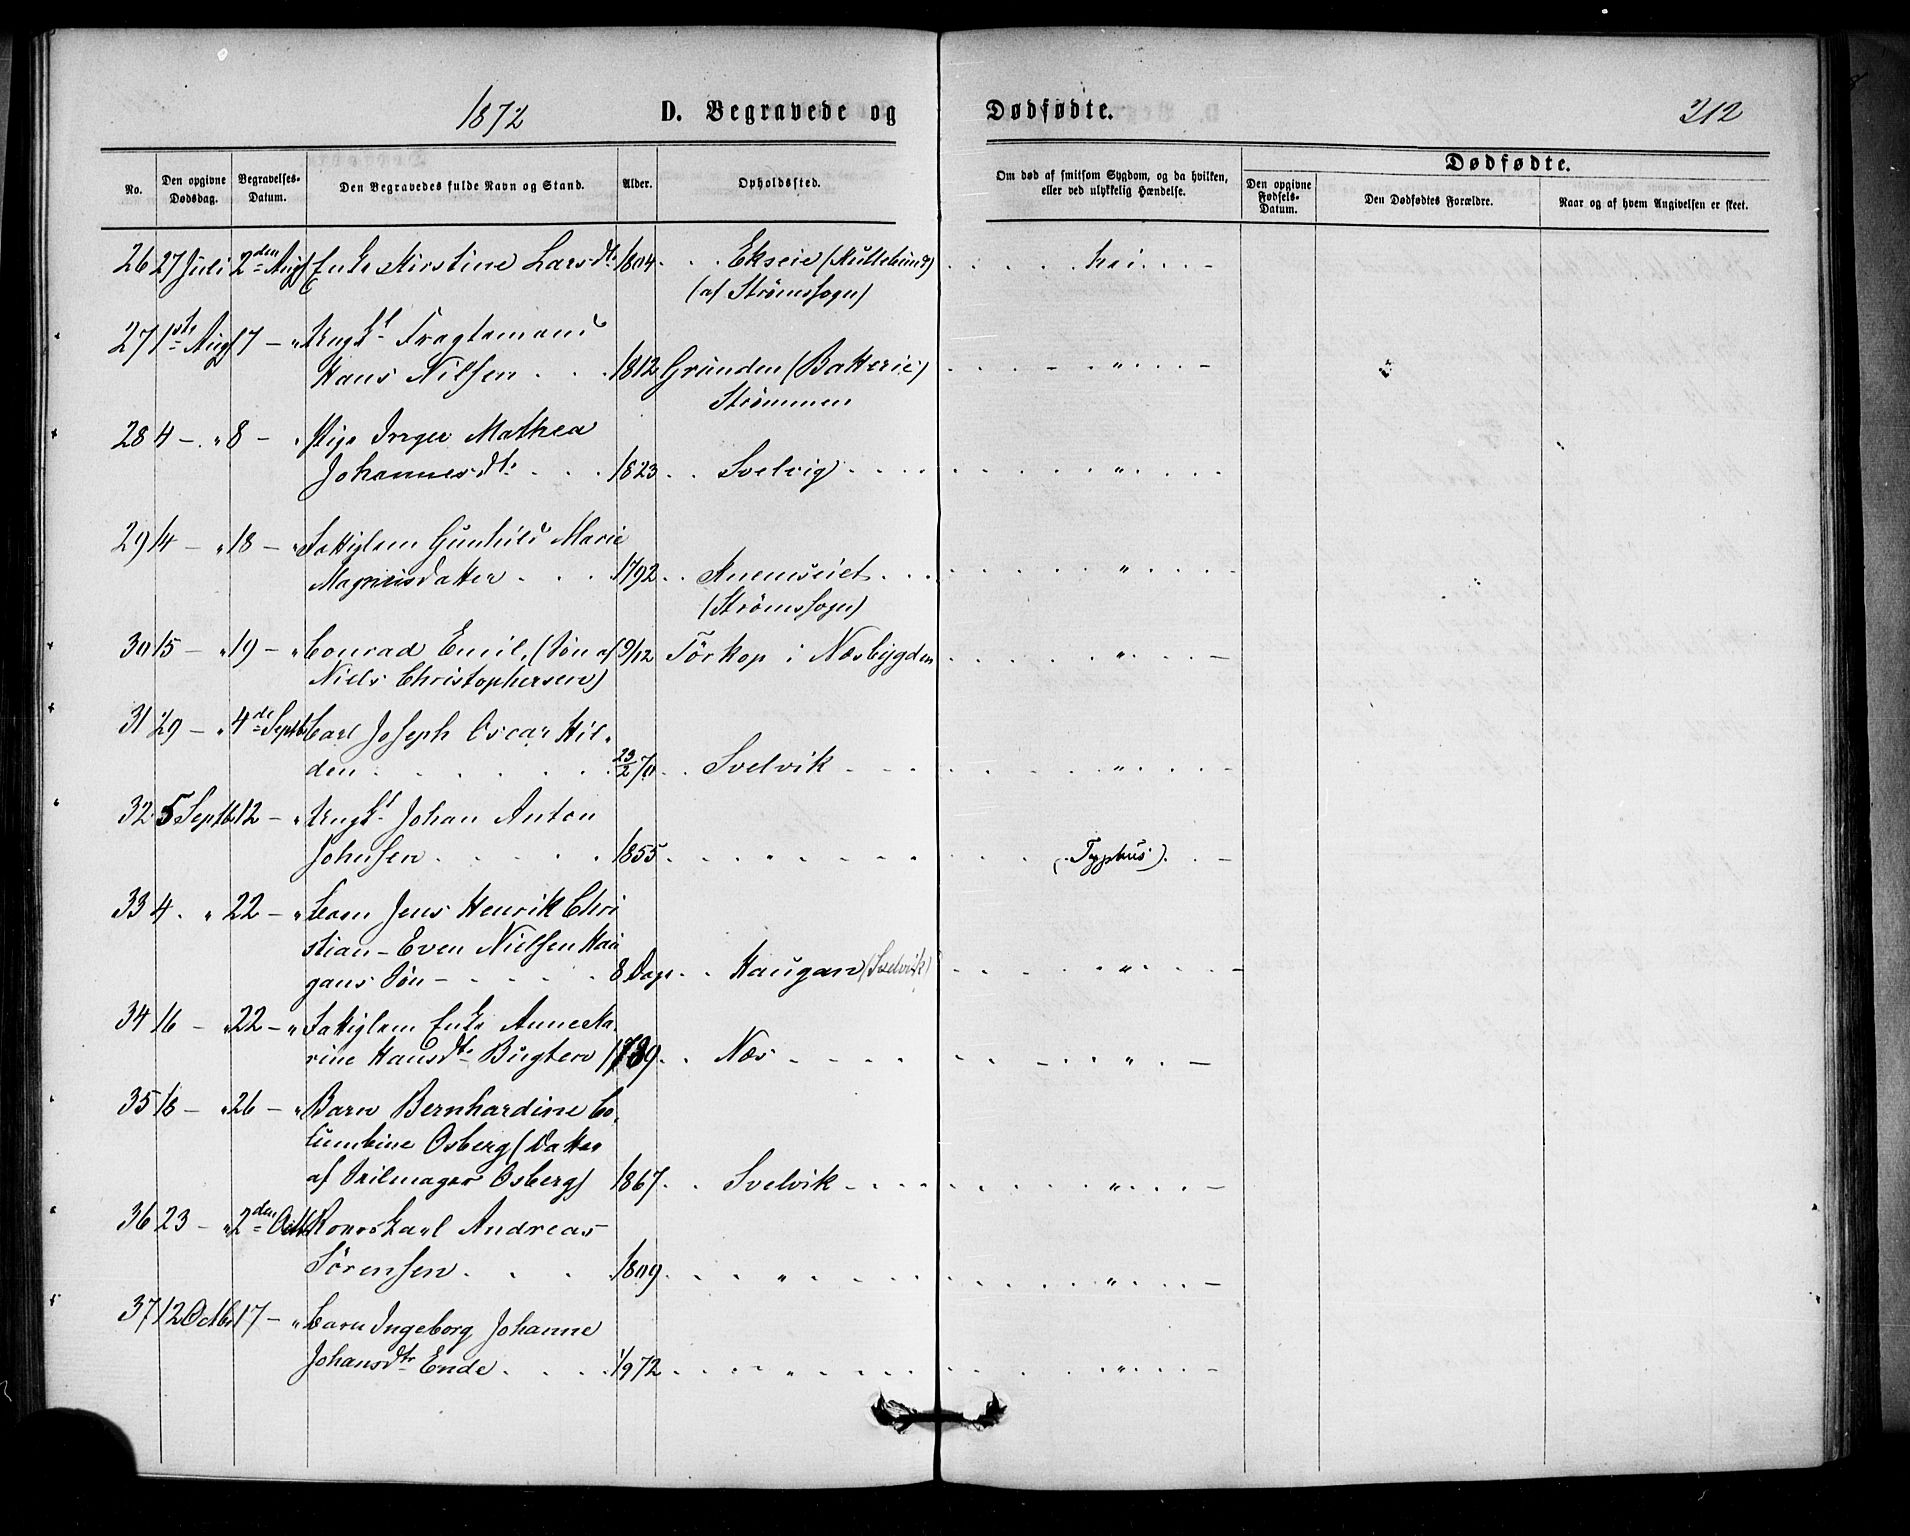 1872 D. Begravede og Dødfødte. 312
Dødfødte.
No. Den opgivne Dødsdag. Begravelses-Datum. Den Begravedes fulde Navn og Stand. Alder. Opholdssted. Om død af smitsom Sygdom, og da hvilken, eller ved ulykkelig Hændelse. Den opgivne Fødsels-Datum. Den Dødfødtes Forældre. Naar og af hvem Angivelsen er skeet.
26 27 Juli 2den Aug Enke Kirstine Larsdtr 1804 Ekseie nei
(af Strømssogn)
27 1ste Aug 17 — " Ungk. Fragtemand
Hans Nilsen 1812 Grunden (Batterie) "
Strømmen
28 4 — " 8 — " Pige Inger Mathea
Johannesdtr 1823 Svelvig "
29 14 — " 18 — " Fattiglem Gunhild Marie
Magnusdatter 1792 "
(Strømssogn)
30 15 — " 19 — " Conrad Emil, (Søn af 9/12 Törkop i Næsbygden "
Niels Christophersen)
31 29 — " 4de Septb Carl Joseph Oscar Hil-
den 23/2 70 Svelvik "
32 5 Septb 12 — " Ungk. Johan Anton
Johnsen 1855 " (Typhus)
33 4 " 22 — " Barn Jens Henrik Chri
stian — Even Nielsen Hau
gans Søn — 8 Dage Haugan (Svelvik) "
34 16 — " 22 — " Fattiglem Enke Anne Ka-
rine Hansdtr Bugten Næs "
35 18 — " 26 — " Barn Bernhardine Co-
lumbine Osberg (Datter
af Seilmager Osberg) 1867 Svelvik "
36 23 — " 2den Octb Andreas
Sörensen 1809 " "
37 12 Octbr 17 — " Barn Ingeborg Johanne
Johansdtr Ende 1/9 72 " "